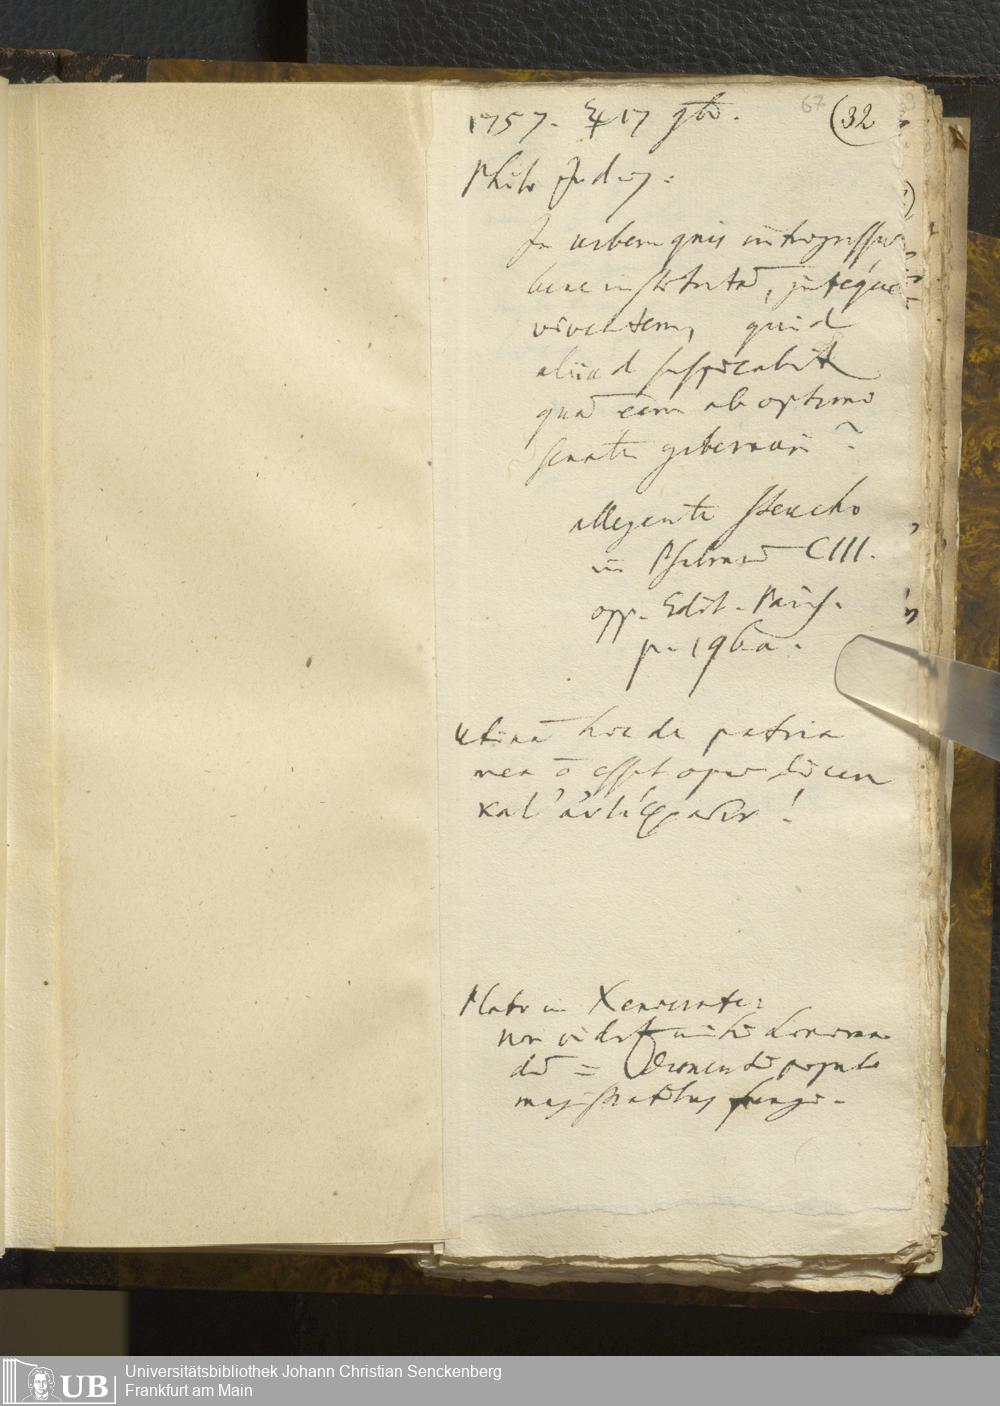 1757. ♃ 17 gbr. 67 (32
Philo Judæus:
In urbem quis introgressus
bene institutā, justéque
viventem, quid
aliud suspicabit
quā eam ab optimo
senatu gubernari?
allegante Steucho
in Psalmum CIII.
opp. Edit. Paris.
p. 196.a.
Utinā hoc de patria
mea ō esset opus dicere
κατ' ἀντίφρασιν!
Plato in Xenocrate:
non videt mihi
populo
magistratibus fungi.
UB
Universitätsbibliothek Johann Christian Senckenberg
Frankfurt am Main